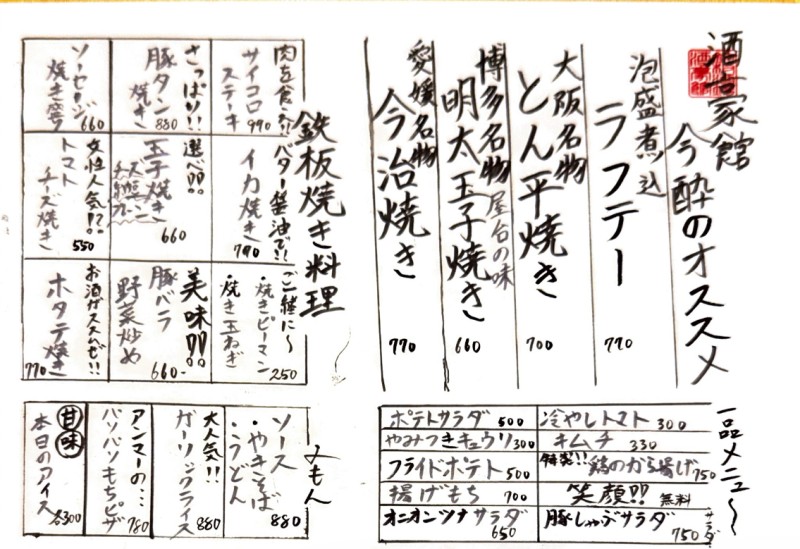 酒言家館
今酔のオススメ
泡盛煮込
ラフテー
770
大阪名物
とん平焼き
700
博多名物 屋台の味
明太玉子焼き
660
愛媛名物
今治焼き
770
鉄板焼き料理
肉を食な!!
サイコロ
ステーキ
990
さっぱり!!
豚タン
焼き
880
ソーセージ
焼き
660
バター醤油で!!
イカ焼き
790
選べ!?!?
玉子焼き
チーズ
納豆
プレーン
660
女性人気!?!?
トマト
チーズ焼き
550
ご一緒に〜
・焼きピーマン
・焼き玉ねぎ
250
美味!!!!
豚バラ
野菜炒め
660-
お酒がススムぜ!!
ホタテ焼き
770
〆もん
ソース
・やきそば
・うどん
880
大人気!!
ガーリックライス
880
アンマーの…
パリパリもちピザ
780
甘味
本日のアイス
各300
一品メニュ〜
ポテトサラダ 500
冷やしトマト 300
やみつきキュウリ 300
キムチ 330
フライドポテト 500
特製!! 鶏のから揚げ 750
揚げもち 700
笑顔!! 無料
オニオンツナサラダ 650
豚しゃぶサラダ 750
サラダ